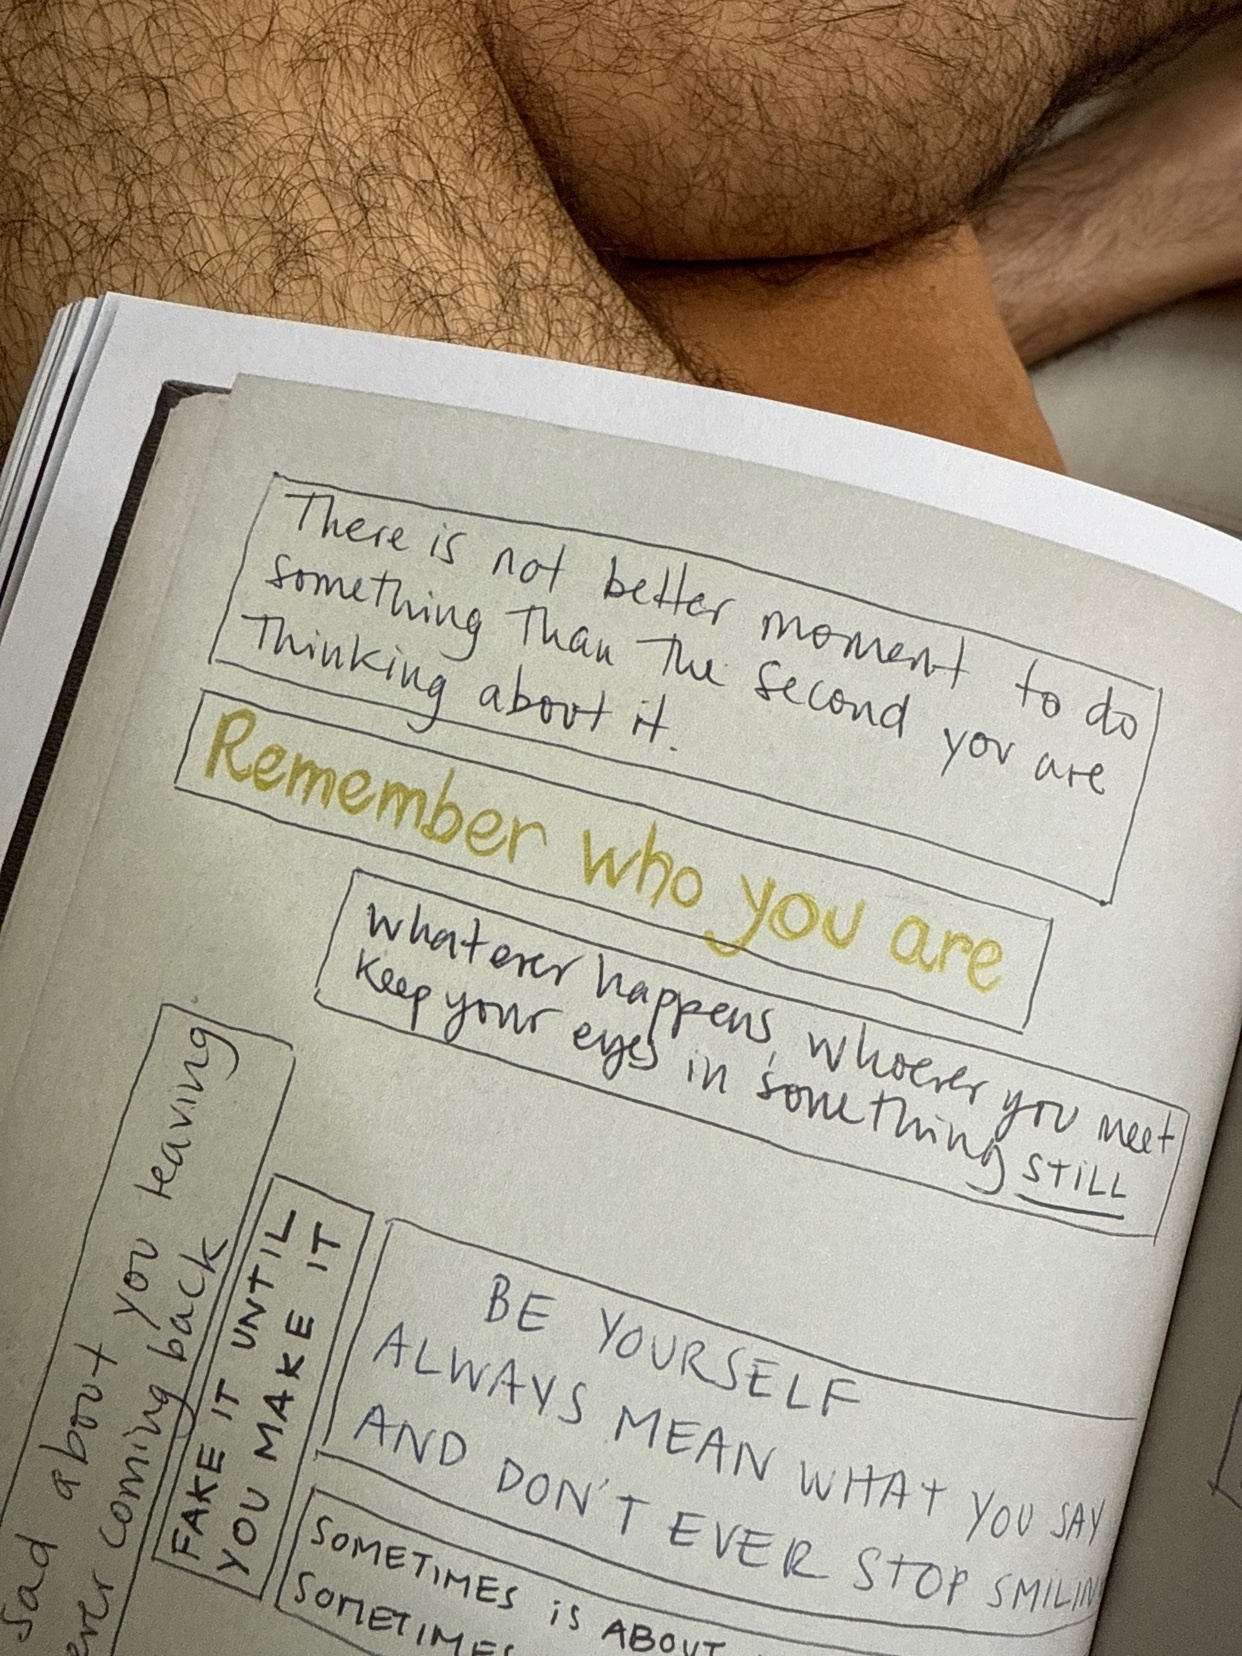 There is not better moment to do
something Than The second you are
Thinking about it.
Remember who you are
whatever happens, whoever you meet
Keep your eyes in something STILL
sad about you leaving
coming back
FAKE IT UNTIL
YOU MAKE IT
BE YOURSELF
ALWAYS MEAN WHAT YOU SAY
AND DON'T EVER STOP SMILIN
SOMETIMES iS ABOUT
SOMETIMES